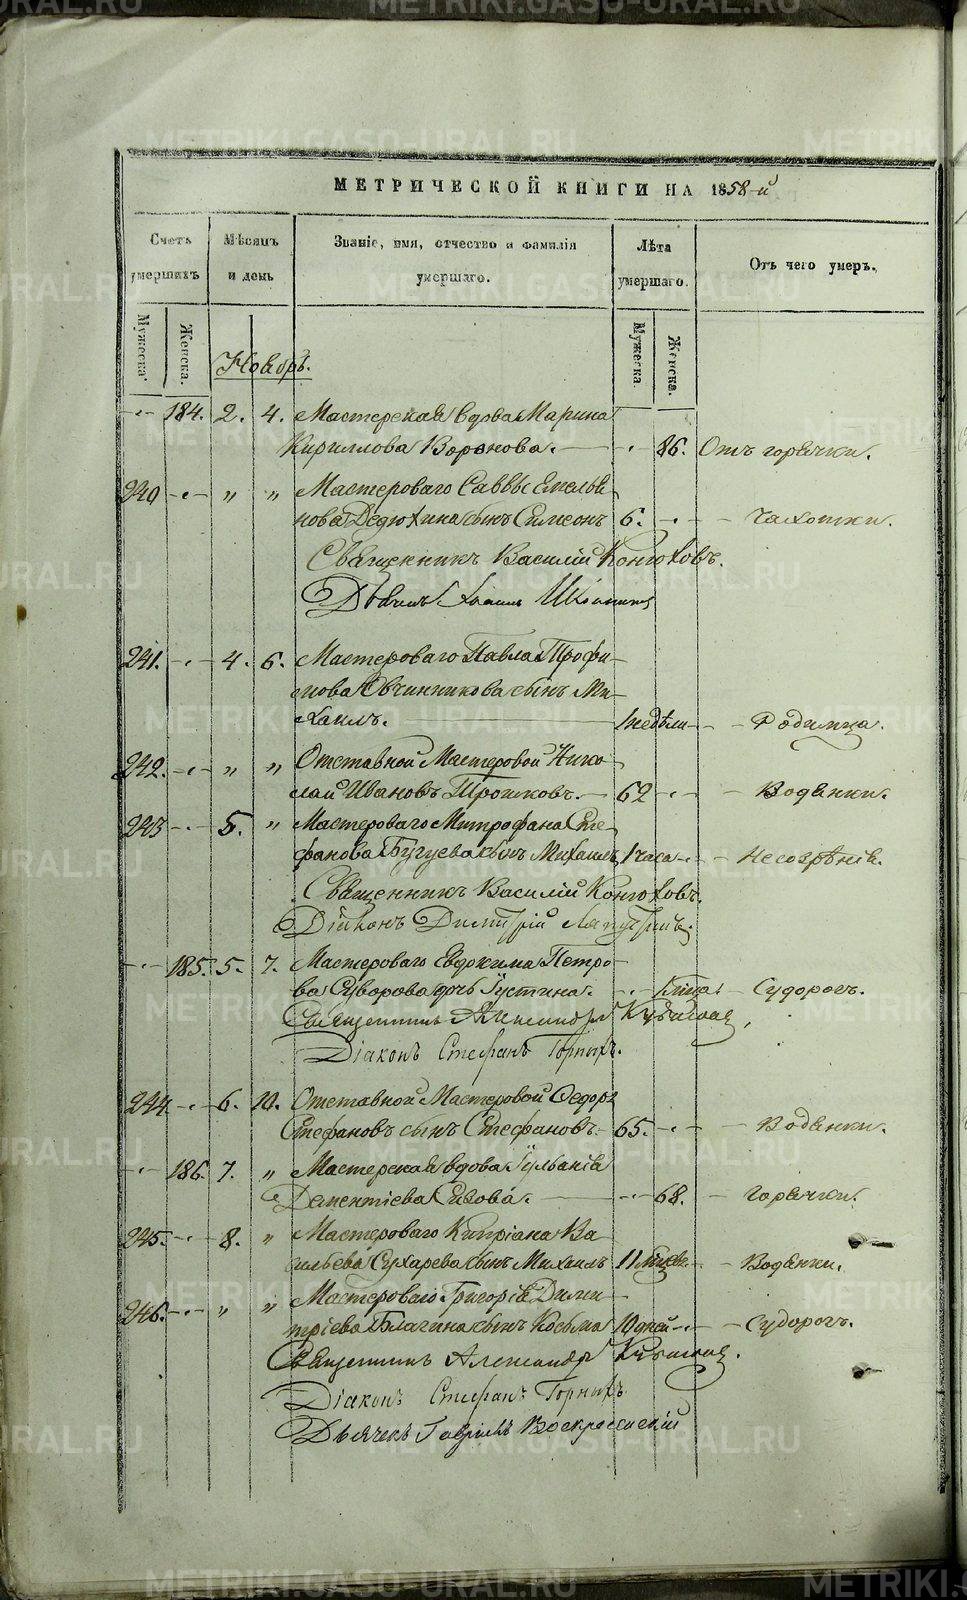 МЕТРИЧЕСКОЙ КНИГИ НА 1858-й
Счетъ умершихъ
Мѣсяцъ и день
Званіе, имя, отчество и фамилія умершаго.
Лѣта умершаго.
Отъ чего умеръ.
Мужеска.
Женска.
Мужеска.
Женска.
Ноябрь.
184. 2. 4. Мастерская вдова Марина
Кириллова Воронова. 86. Отъ горячки.
240 " " Мастероваго Саввы Емелья-
нова Дедюхина сынъ Симеонъ 6. Чахотки.
Священникъ Василій Конюховъ.
241. 4. 6. Мастероваго Павла Трофи-
мова Овчинникова сынъ Ми-
хаилъ. 1 недѣли Родимца.
242. " " Отставной Мастеровой Нико-
лай Ивановъ Трошковъ. 62 Водянки.
243 5. " Мастероваго Митрофана Сте-
фанова Бугуева сынъ Михаилъ 1 часа Несозрѣнія.
Священникъ Василій Конюховъ.
Діаконъ Димитрій
185. 5. 7. Мастероваго Евдокима Петро-
ва Суворова дочь Іустина. Судорогъ.
Священникъ Александръ
Діаконъ Стефанъ Горныхъ.
244 6. 10. Отставной Мастеровой Федоръ
Стефановъ сынъ Стефановъ. 65. Водянки.
186. 7. " Мастерская вдова Іульанія
Дементіева Сизова. 68. Горячки.
245. 8. " Мастероваго Кипріана Ва-
сильева Сухарева сынъ Михаилъ 11 Водянки.
246. " " Мастероваго Григорія Дими-
тріева Благина сынъ Косьма 10 дней Судорогъ.
Священникъ Александръ
Діаконъ Стефанъ Горныхъ
Дьячекъ Гавріилъ Воскресенскій
METRIKI.GASO-URAL.RU